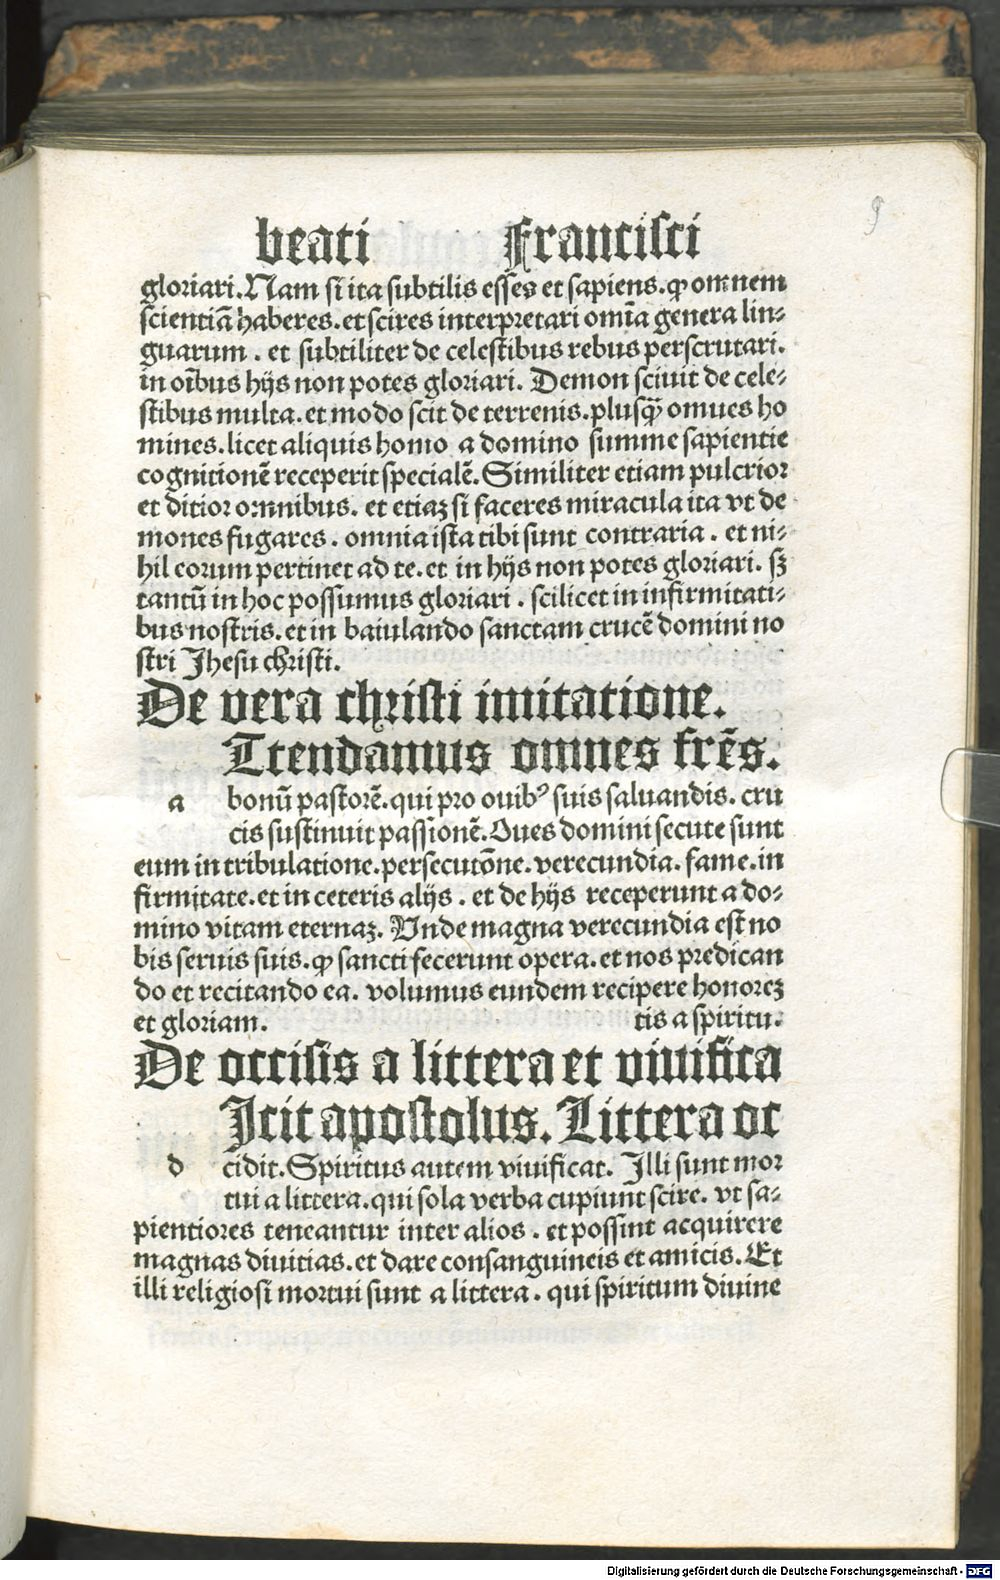 9
beati Francisci
gloriari. Nam si ita subtilis esses et sapiens. ꝙ omnem
scientiā haberes. et scires interpretari om̄ia genera lin⸗
guarum . et subtiliter de celestibus rebus perscrutari.
in oībus hijs non potes gloriari. Demon sciuit de cele⸗
stibus multa. et modo scit de terrenis. plusꝙ̄ omues ho
mines. licet aliquis homo a domino summe sapientie
cognitionē receperit specialē. Similiter etiam pulcrior
et ditior omnibus. et etiaꝫ si faceres miracula ita vt de
mones fugares . omnia ista tibi sunt contraria . et ni⸗
hil eorum pertinet ad te. et in hijs non potes gloriari. sꝫ
tantū in hoc possumus gloriari . scilicet in infirmitati⸗
bus nostris. et in baiulando sanctam crucē domini no
stri Jhesu christi.
De vera christi imitatione.
Ttendamus omnes frēs.
a bonū pastorē. qui pro ouibꝰ suis saluandis. cru
cis sustinuit passionē. Oues domini secute sunt
eum in tribulatione. persecutōne. verecundia. fame. in
firmitate. et in ceteris alijs . et de hijs receperunt a do⸗
mino vitam eternaꝫ. Vnde magna verecundia est no
bis seruis suis. ꝙ sancti fecerunt opera. et nos predican
do et recitando ea. volumus eundem recipere honoreꝫ
et gloriam. tis a spiritu.
De occisis a littera et viuifica
Icit apostolus. Littera oc
d cidit. Spiritus autem viuificat. Illi sunt mor
tui a littera. qui sola verba cupiunt scire. vt sa⸗
pientiores teneantur inter alios . et possint acquirere
magnas diuitias. et dare consanguineis et amicis. Et
illi religiosi mortui sunt a littera . qui spiritum diuine
Digitalisierung gefördert durch die Deutsche Forschungsgemeinschaft - DFG